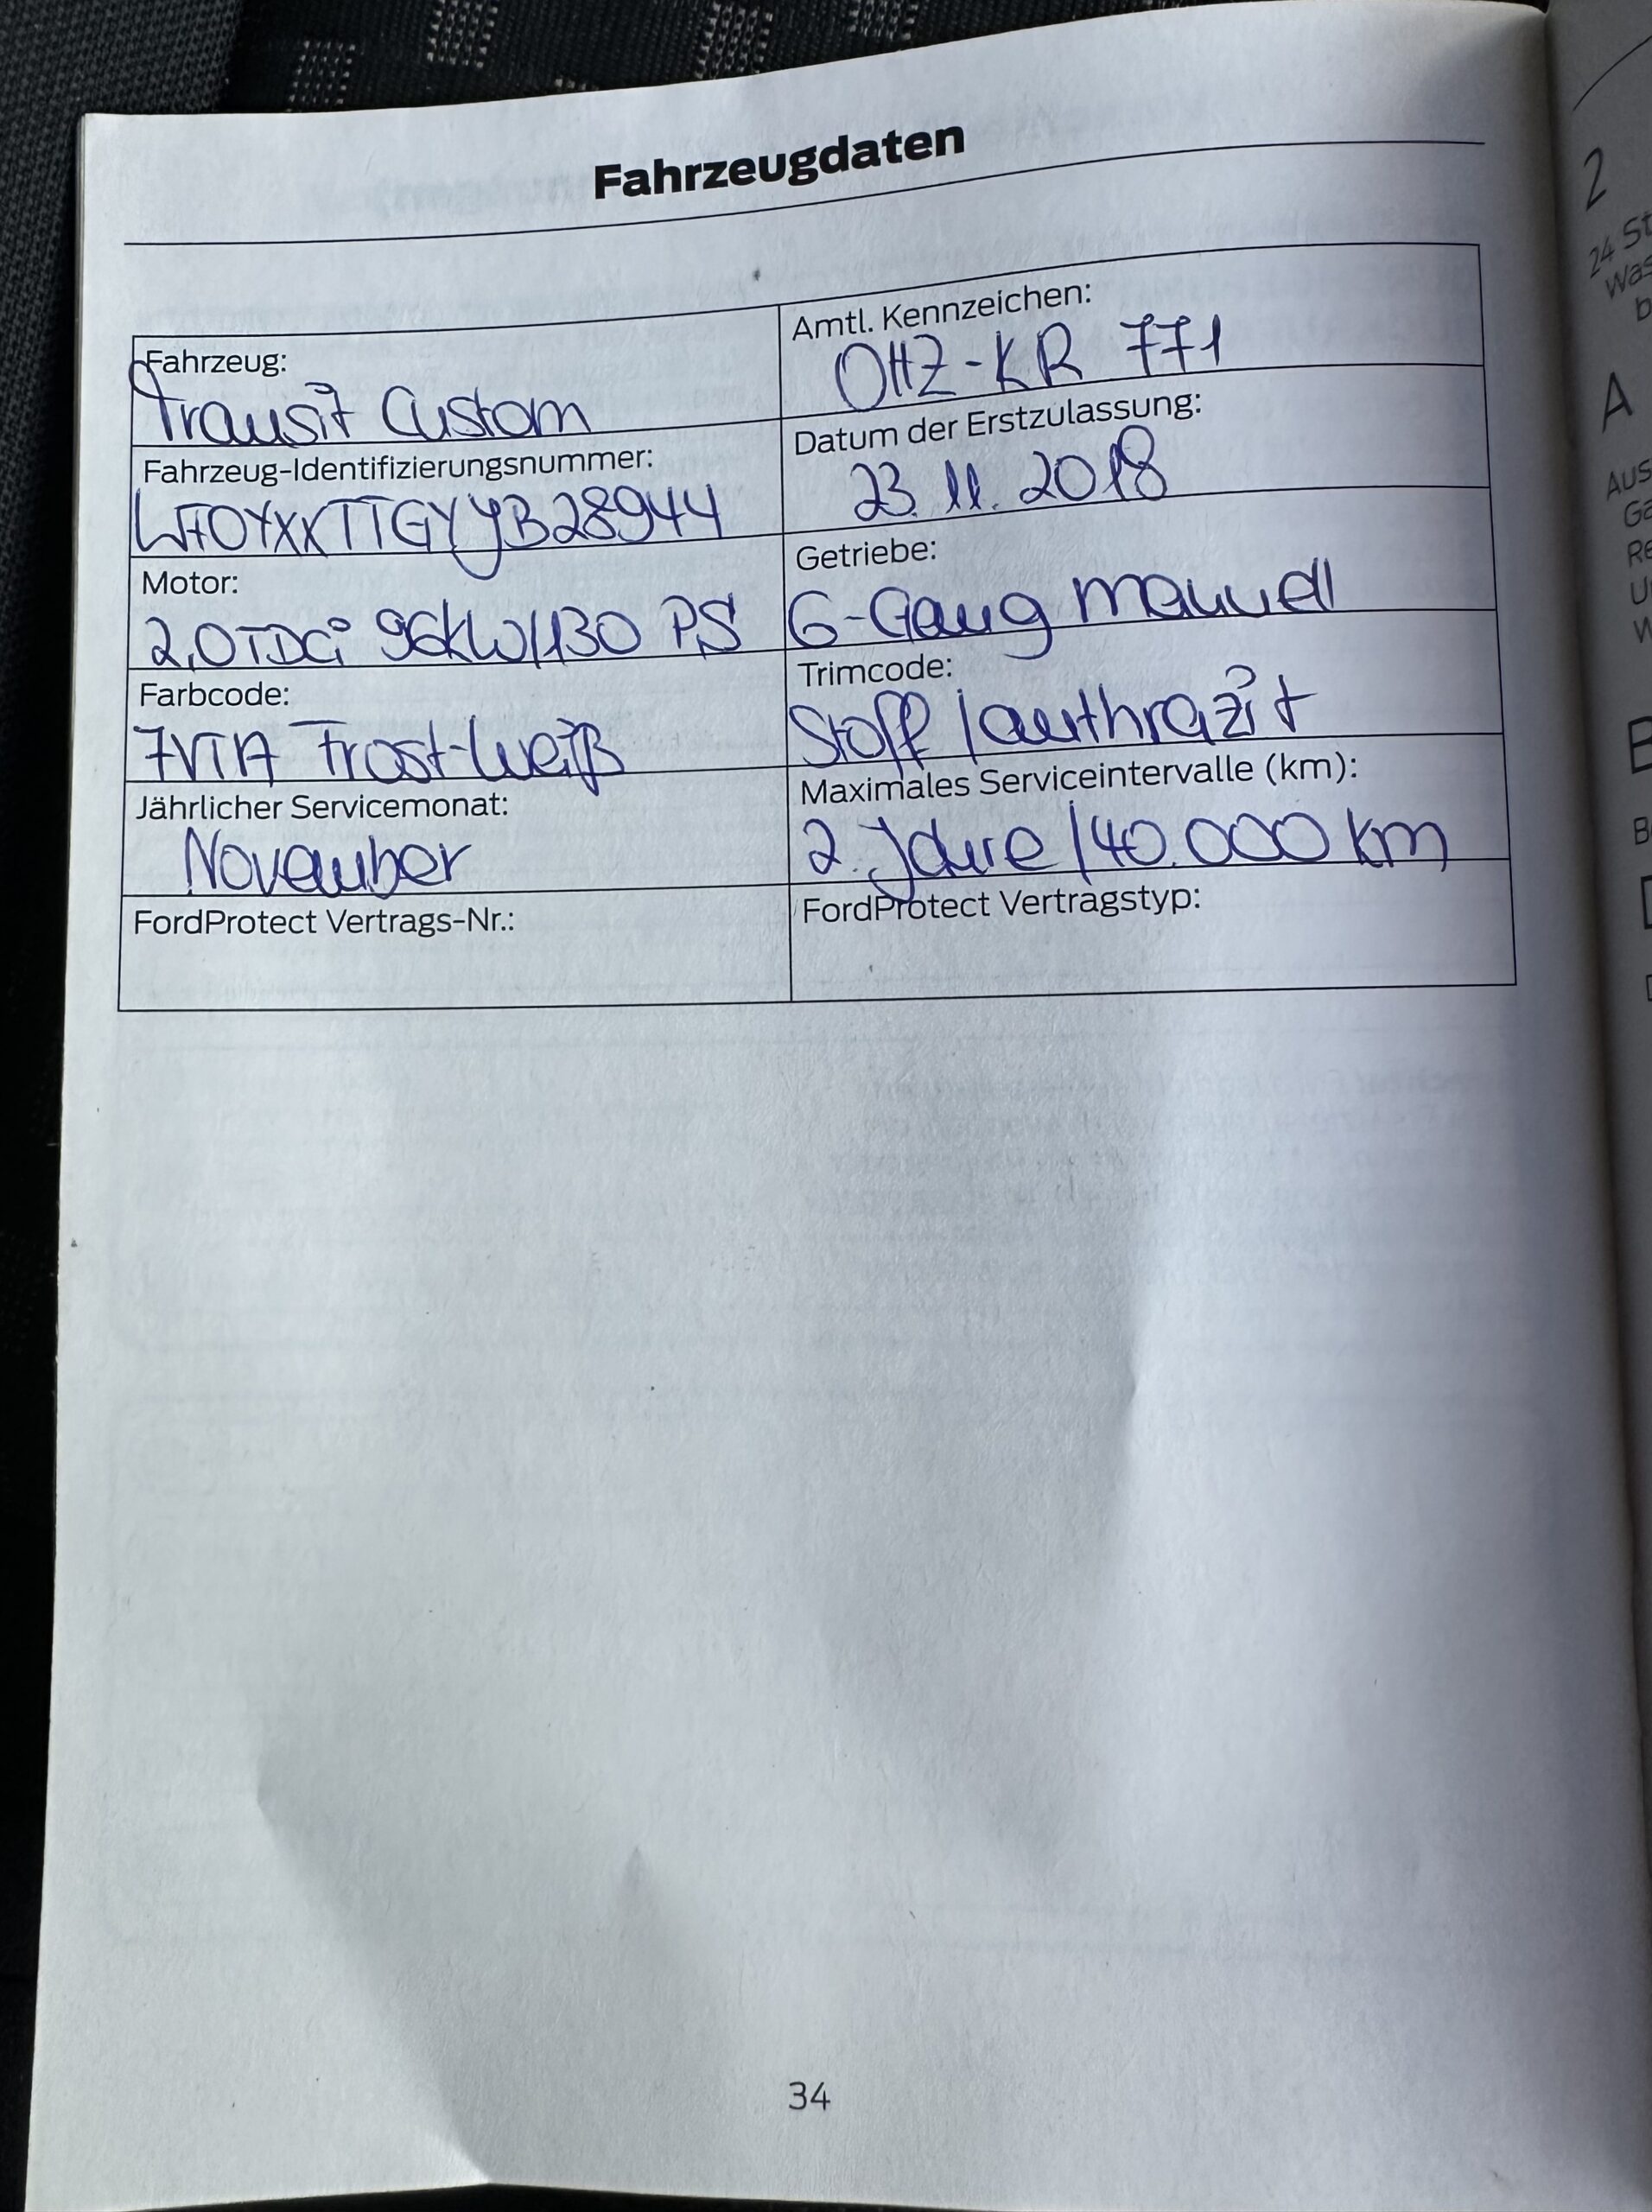 Fahrzeugdaten
Fahrzeug:
Transit Custom
Amtl. Kennzeichen:
OHZ-KR 771
Fahrzeug-Identifizierungsnummer:
WF0YXXTTGYJB28944
Datum der Erstzulassung:
23.11.2018
Motor:
2,0TDCi 96kW/130 PS
Getriebe:
6-Gang manuell
Farbcode:
7VTA Frost-Weiß
Trimcode:
Stoff/anthrazit
Jährlicher Servicemonat:
November
Maximales Serviceintervalle (km):
2 Jahre/40.000 km
FordProtect Vertrags-Nr.:
FordProtect Vertragstyp:
34
2
24 St
A